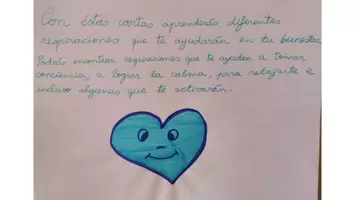 Con éstas cartas aprenderás diferentes
respiraciones que te ayudarán en tu bienestar.
Podrás encontrar respiraciones que te ayuden a tomar
conciencia, a lograr la calma, para relajarte e
incluso algunas que te activarán.